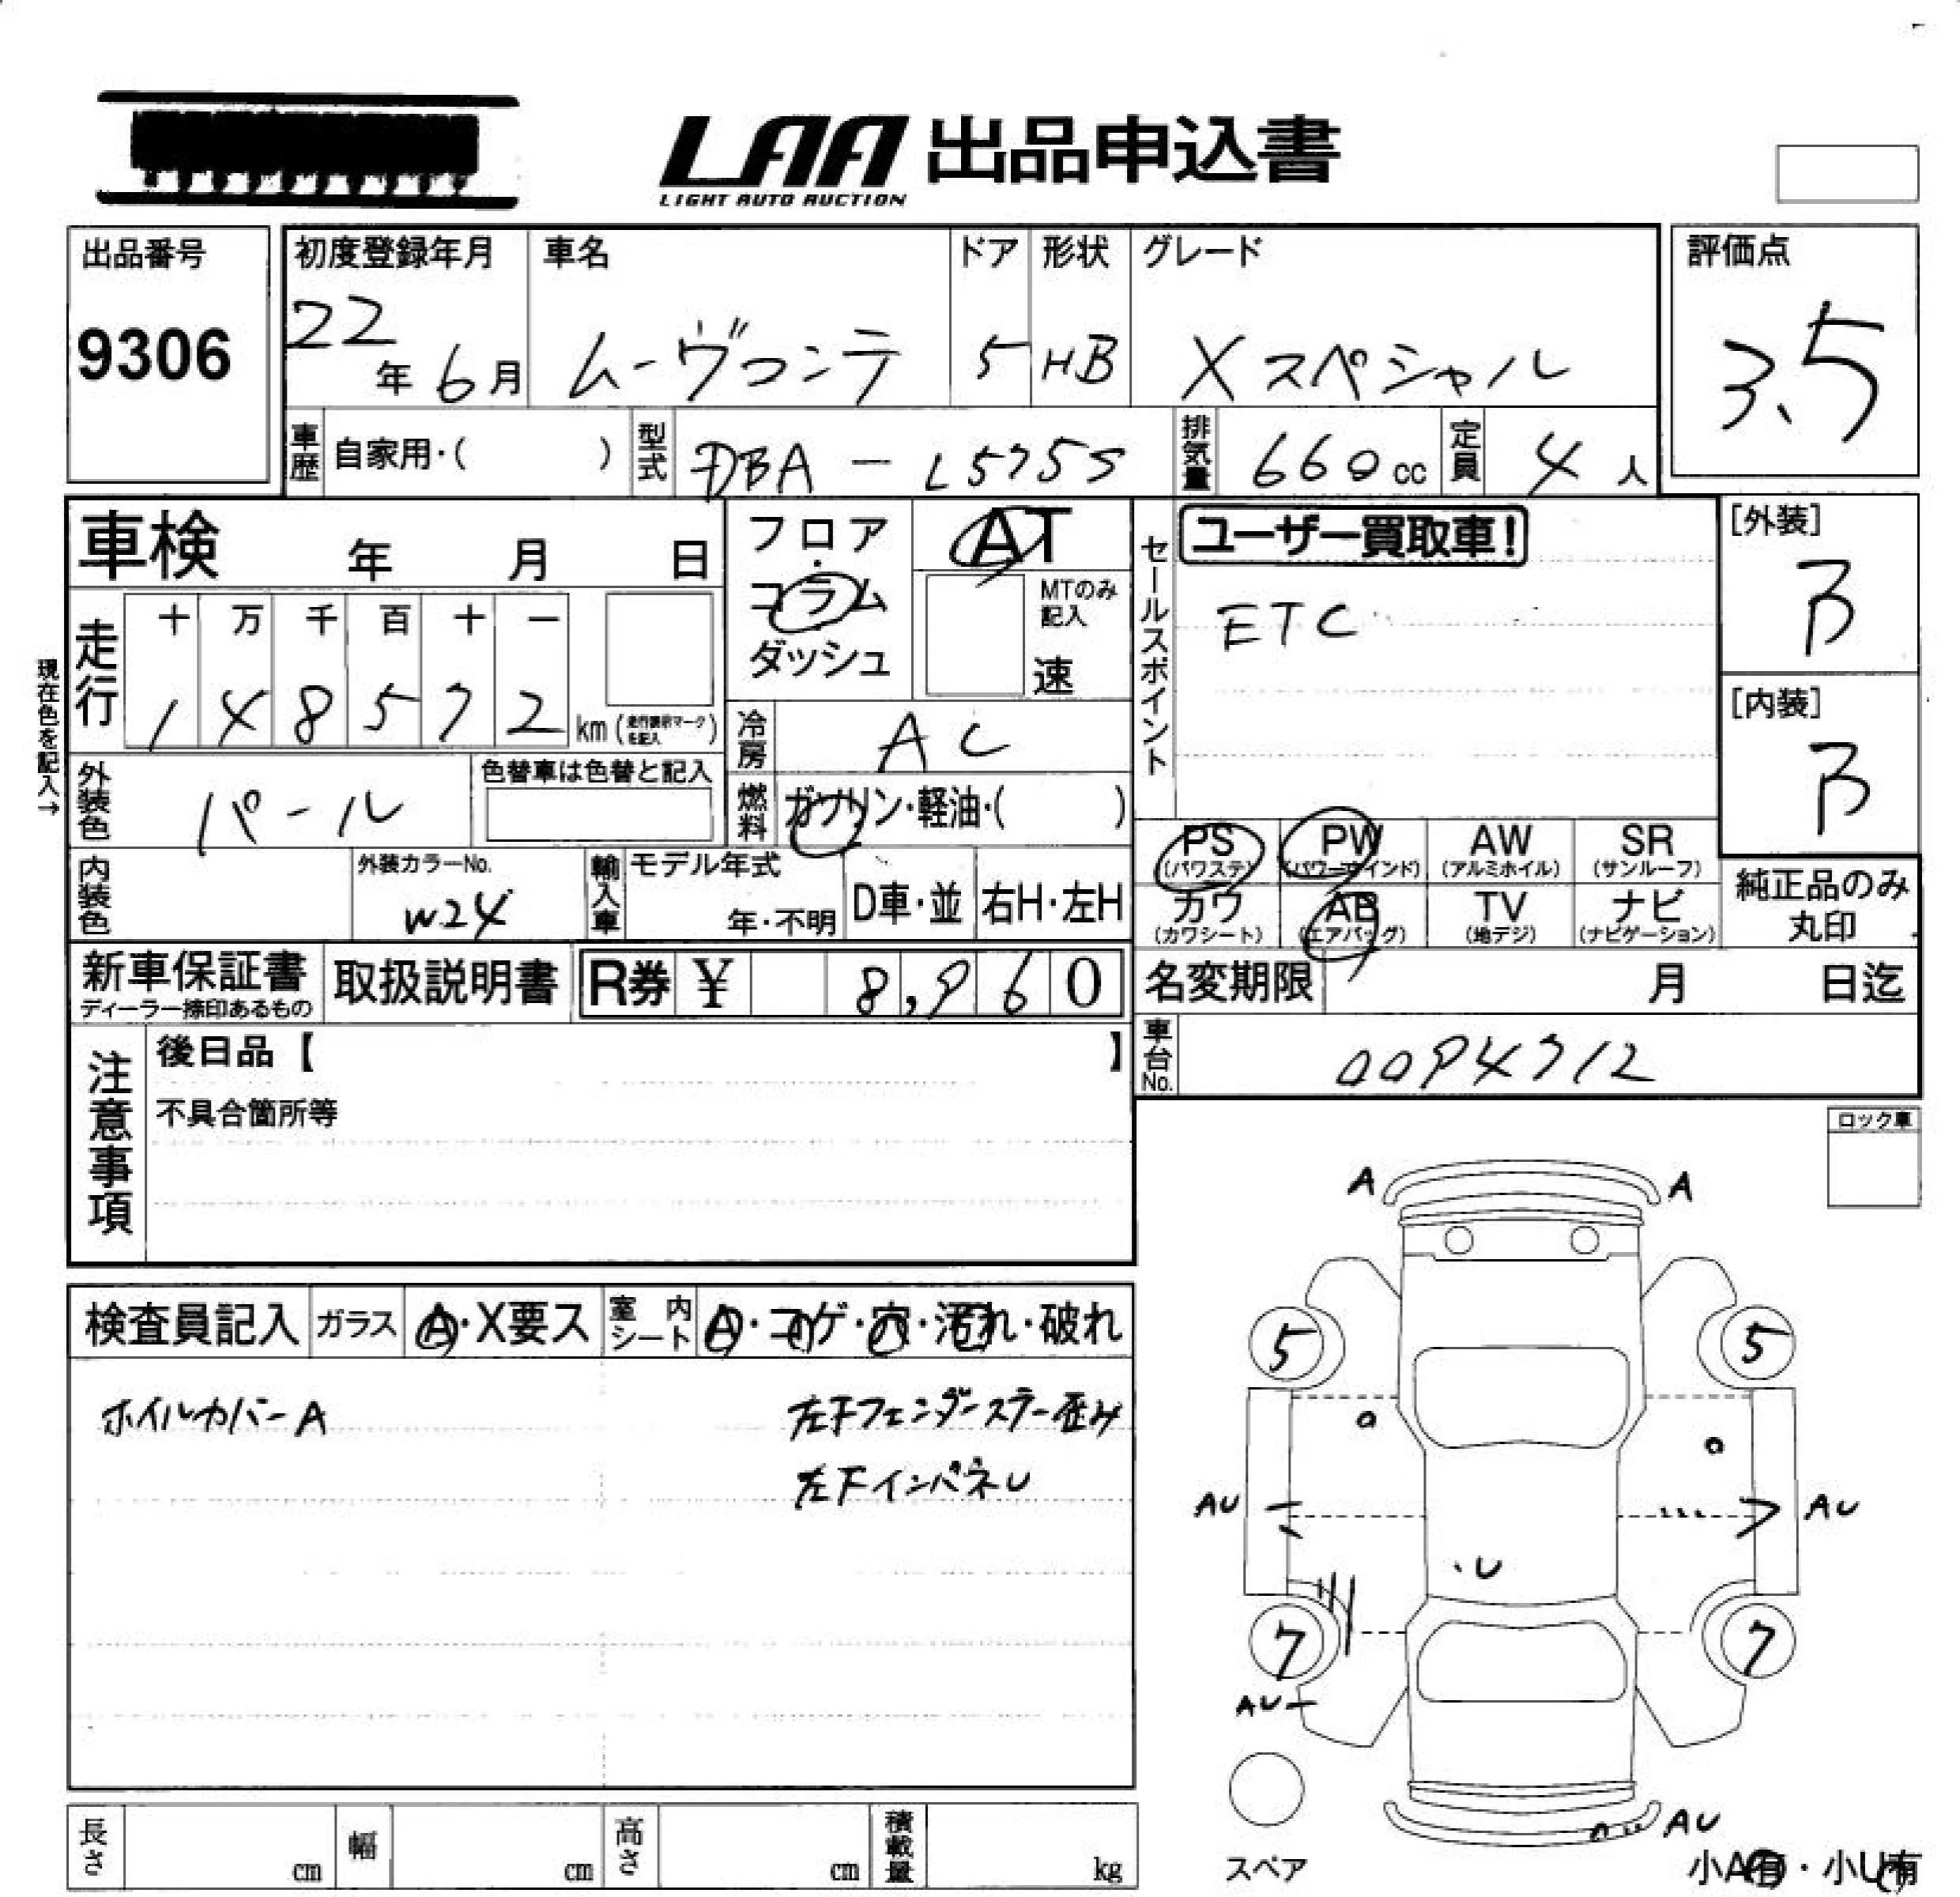 LAA 出品申込書
LIGHT AUTO AUCTION
出品番号
9306
初度登録年月 車名 ドア 形状 グレード
22年 6月 ムーヴコンテ 5 HB Xスペシャル
評価点
3.5
車歴 自家用・( ) 型式 DBA-L575S 排気量 660cc 定員 4人
車検 年 月 日
フロア・コラム
ダッシュ
AT
MTのみ記入
速
現在色を記入→
走行
十 万 千 百 十 一
1 4 8 5 7 2 km (走行表示マークを記入)
冷房 AC
外装色 パール 色替車は色替と記入
燃料 ガソリン・軽油・( )
内装色 外装カラーNo. W24
輸入車 モデル年式 年・不明 D車・並 右H・左H
新車保証書
ディーラー捺印あるもの
取扱説明書
R券 ¥ 8,960
セールスポイント
ユーザー買取車!
ETC
[外装]
B
[内装]
B
PS PW AW SR
(パワステ) (パワーウインド) (アルミホイル) (サンルーフ)
カワ AB TV ナビ
(カワシート) (エアバッグ) (地デジ) (ナビゲーション)
純正品のみ丸印
名変期限 月 日迄
車台No. 0094712
注意事項
後日品【 】
不具合箇所等
ロック車
検査員記入 ガラス A・X要ス 室内シート A・コゲ・穴・汚れ・破れ
ホイルカバーA
左下フェンダーステー歪み
左下インパネU
A A
5 5
AU AU
・U
7 7
AU
AU
スペア
小A有・小U有
長さ cm 幅 cm 高さ cm 積載量 kg